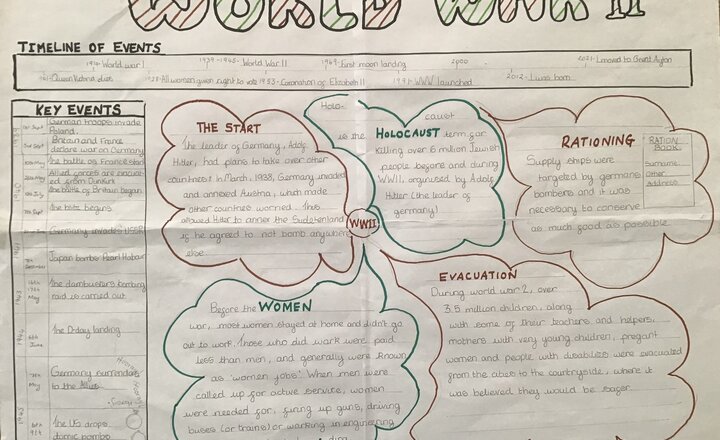 WORLD WAR II
TIMELINE OF EVENTS
1914-World war I
1939-1945- World War II
1969-First moon landing
2000
2021-I moved to Great Ayton
1901-Queen Victoria dies
1928-All women given right to vote
1953-Coronation of Elizabeth II
1991-WWW launched
2012-I was born
KEY EVENTS
1st Sept
German troops invade
Poland.
3rd Sept
Britain and France
declare war on Germany
10th May
The battle of France start
26th May
Allied forces are evacu-
ed from Dunkirk
10th July
The battle of Britain began
1940
7th Sept
The blitz begins
June
Germany invades USSR
1941
7th
December
Japan bombs Pearl Habour
1943
16th
17th
May
The dambusters bombing
raid is carried out
1944
6th
June
The D-day landing
7th
May
Germany surrenders
to the Allies
1945
6th
9th
The US drops
atomic bombs
THE START
The leader of Germany, Adolf
Hitler, had plans to take over other
countries. In March, 1938, Germany invaded
and annexed Austria, which made
other countries worried. This
allowed Hitler to annex the Sudetenland
if he agreed to not bomb anywhere
else.
Holo-
caust
is the HOLOCAUST term for
killing over 6 million Jewish
people before and during
WWII, organised by Adolf
Hitler (the leader of
germany)
RATIONING
Supply ships were
targeted by germans
bombers and it was
necessary to conserve
as much good as possible
RATION
BOOK
Surname
Other
Address
WWII
Before the WOMEN
war, most women stayed at home and didn't go
out to work. Those who did work were paid
less than men, and generally were known
as 'women jobs'. When men were
called up for active service, women
were needed for, firing up guns, driving
buses (or trains) or working in engineering
EVACUATION
During world war 2, over
3.5 million children, along
with some of their teachers and helpers,
mothers with very young children, pregant
women and people with disabilities were evacuated
from the cities to the countryside, where it
was believed they would be safer